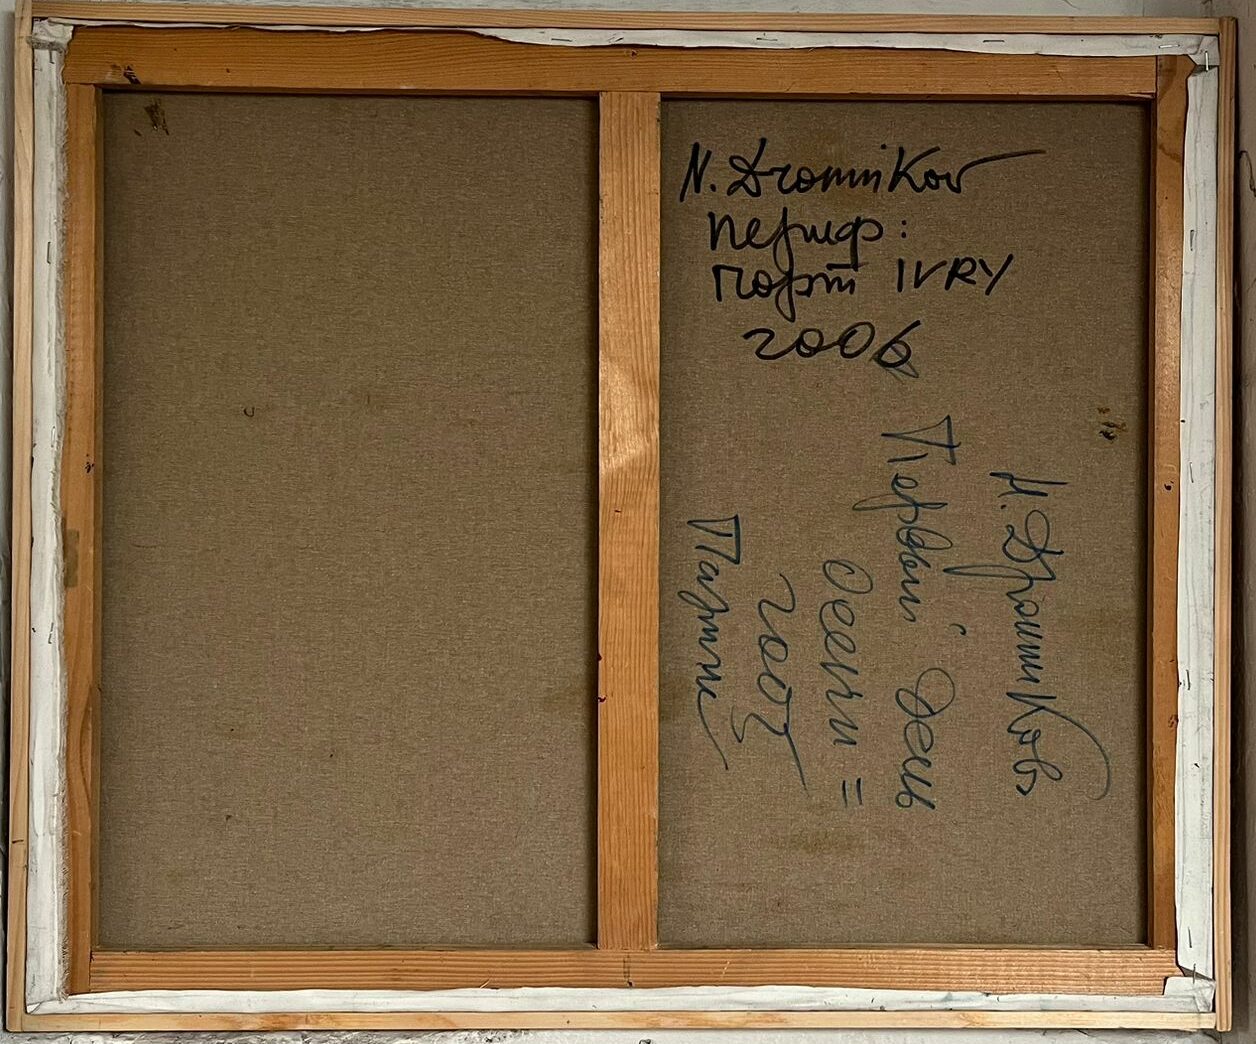 N. Dronnikov
Периф:
порт IVRY
2006
Н. Дронников
Первый день
осени =
Париж